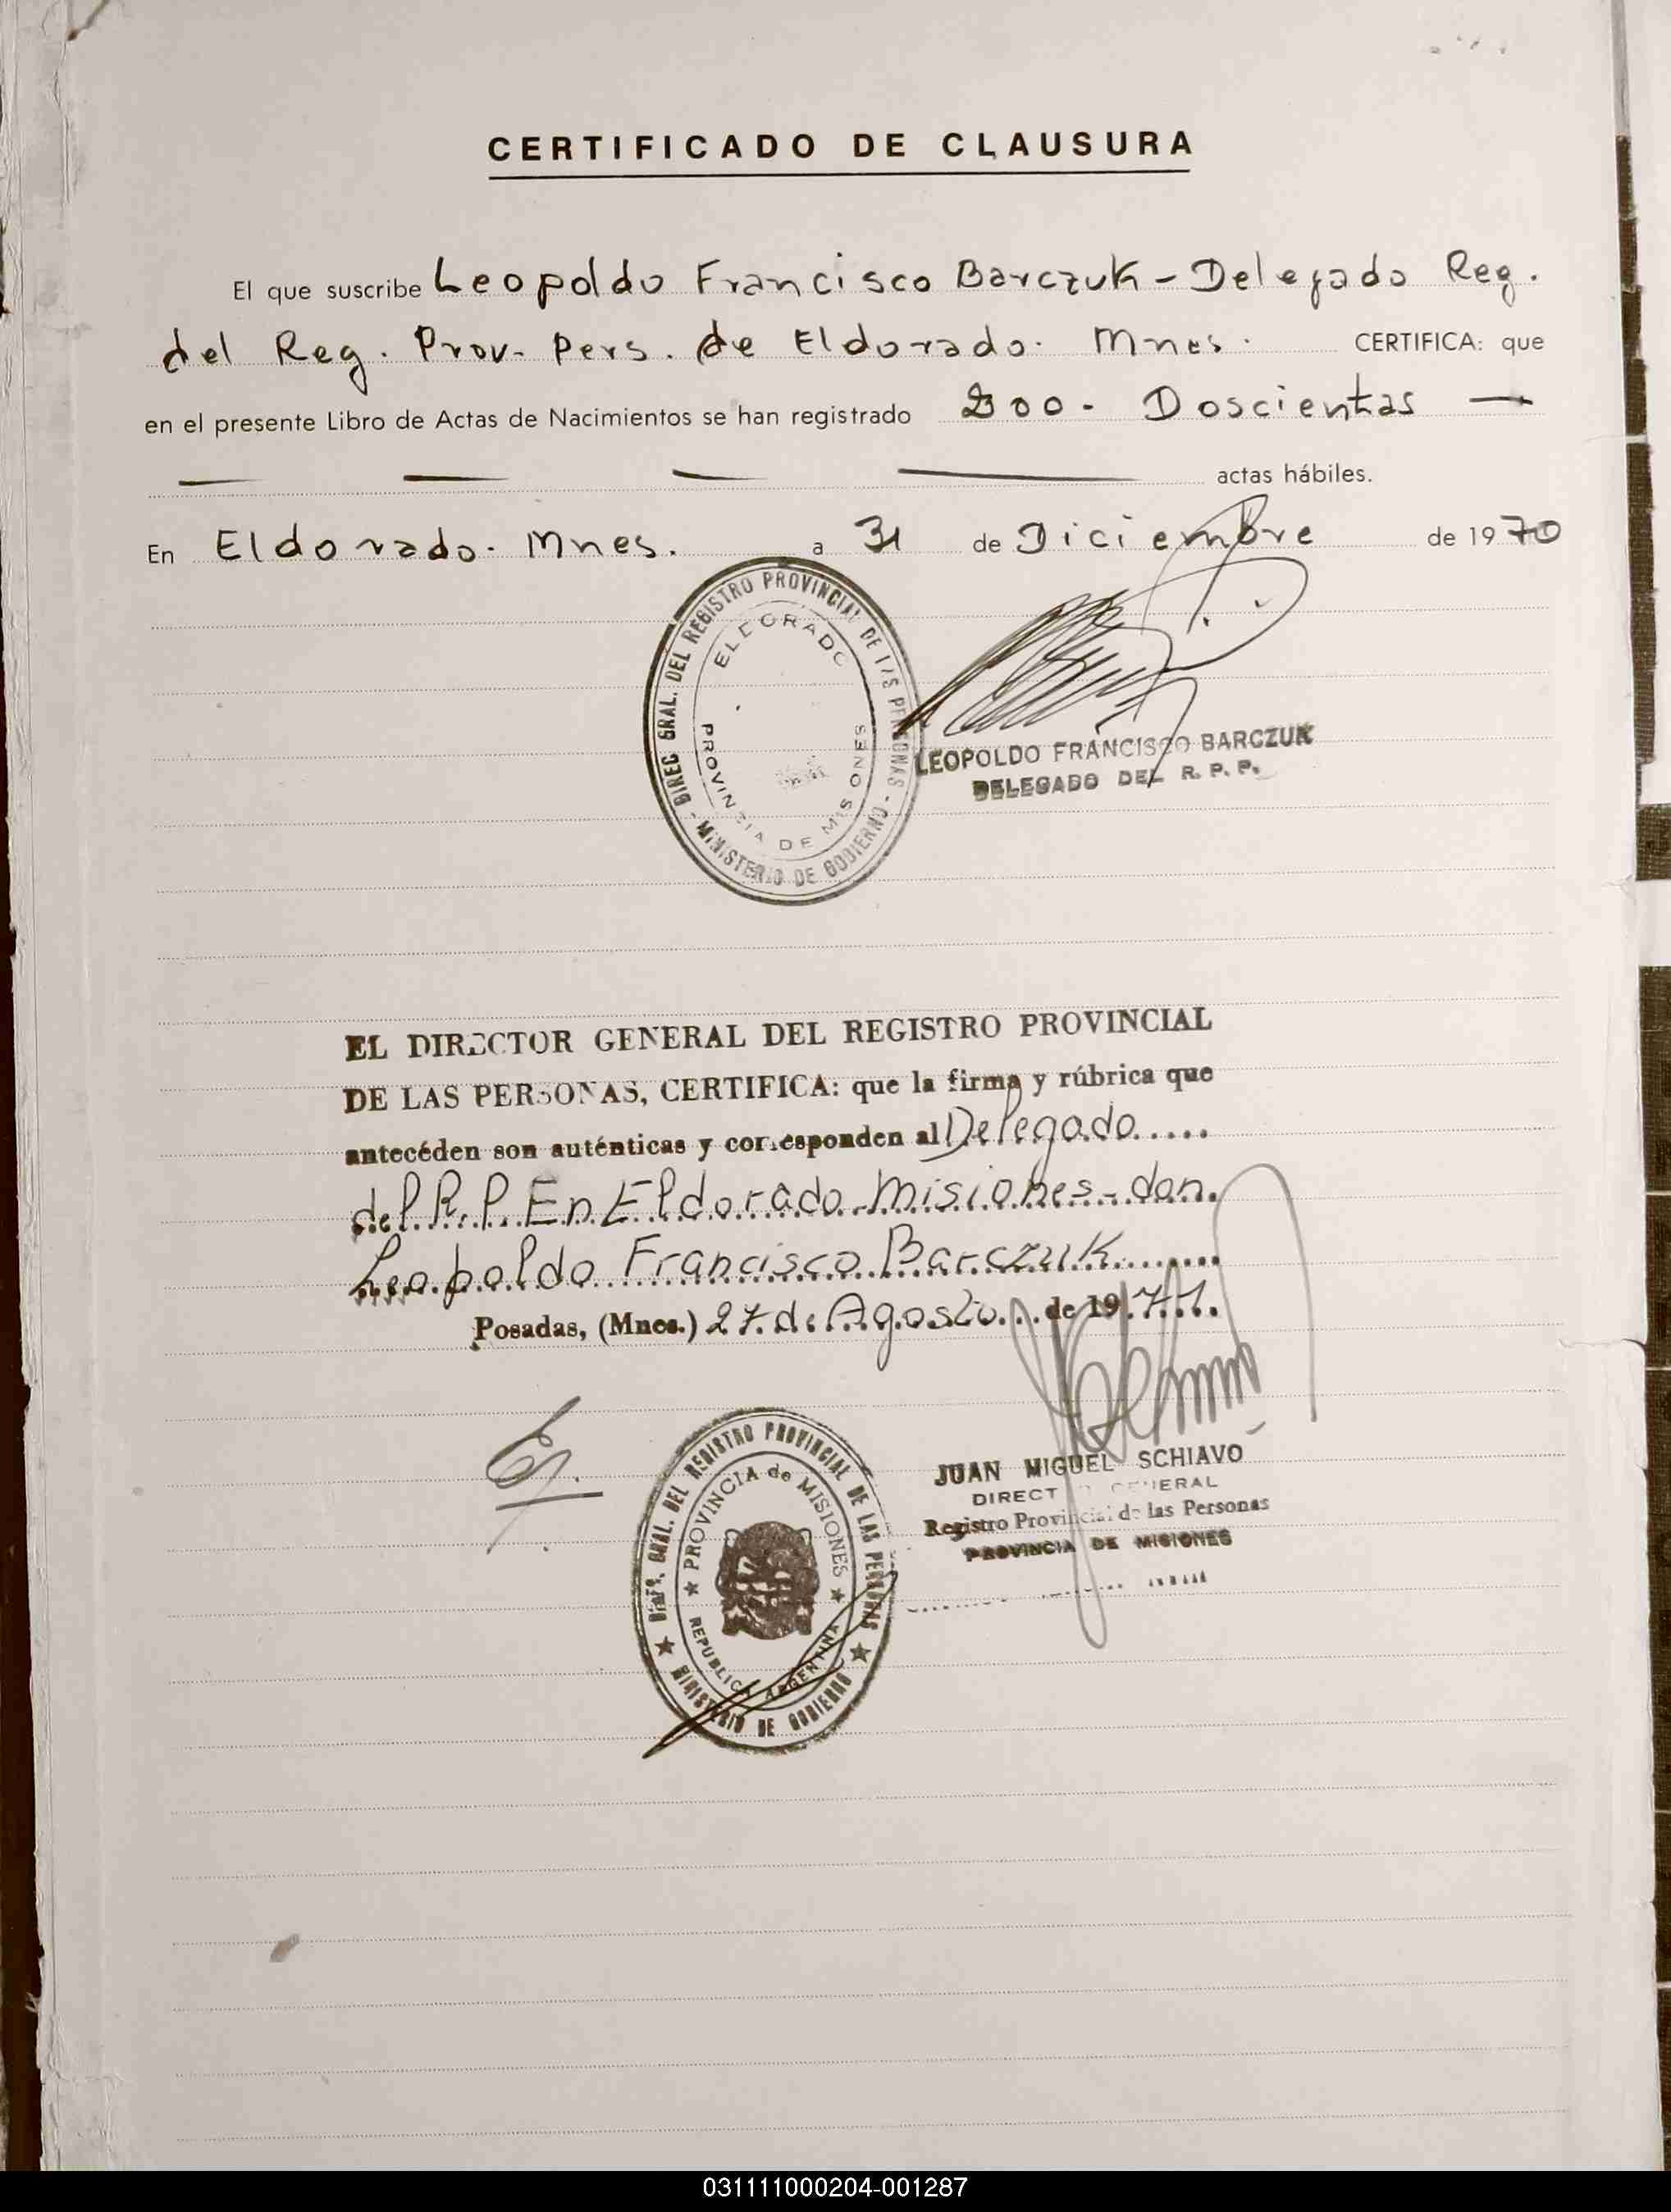 CERTIFICADO DE CLAUSURA
El que suscribe Leopoldo Francisco Barczuk - Delegado Reg.
del Reg. Prov. Pers. de Eldorado. Mnes. CERTIFICA: que
en el presente Libro de Actas de Nacimientos se han registrado 200 - Doscientas —
— — — — actas hábiles.
En Eldorado. Mnes. a 31 de Diciembre de 1970
DIREC GRAL. DEL REGISTRO PROVINCIAL DE LAS PERSONAS - MINISTERIO DE GOBIERNO -
ELDORADO
PROVINCIA DE MISIONES
LEOPOLDO FRANCISCO BARCZUK
DELEGADO DEL R. P. P.
EL DIRECTOR GENERAL DEL REGISTRO PROVINCIAL
DE LAS PERSONAS, CERTIFICA: que la firma y rúbrica que
antecéden son auténticas y corresponden al Delegado.....
del R. P. En Eldorado Misiones - don.
Leopoldo Francisco Barczuk.......
Posadas, (Mnes.) 27 de Agosto... de 1971.
DIREC. GRAL. DEL REGISTRO PROVINCIAL DE LAS PERSONAS ★ MINISTERIO DE GOBIERNO ★
PROVINCIA de MISIONES ★ REPUBLICA ARGENTINA ★
JUAN MIGUEL SCHIAVO
DIRECTOR GENERAL
Registro Provincial de las Personas
PROVINCIA DE MISIONES
031111000204-001287